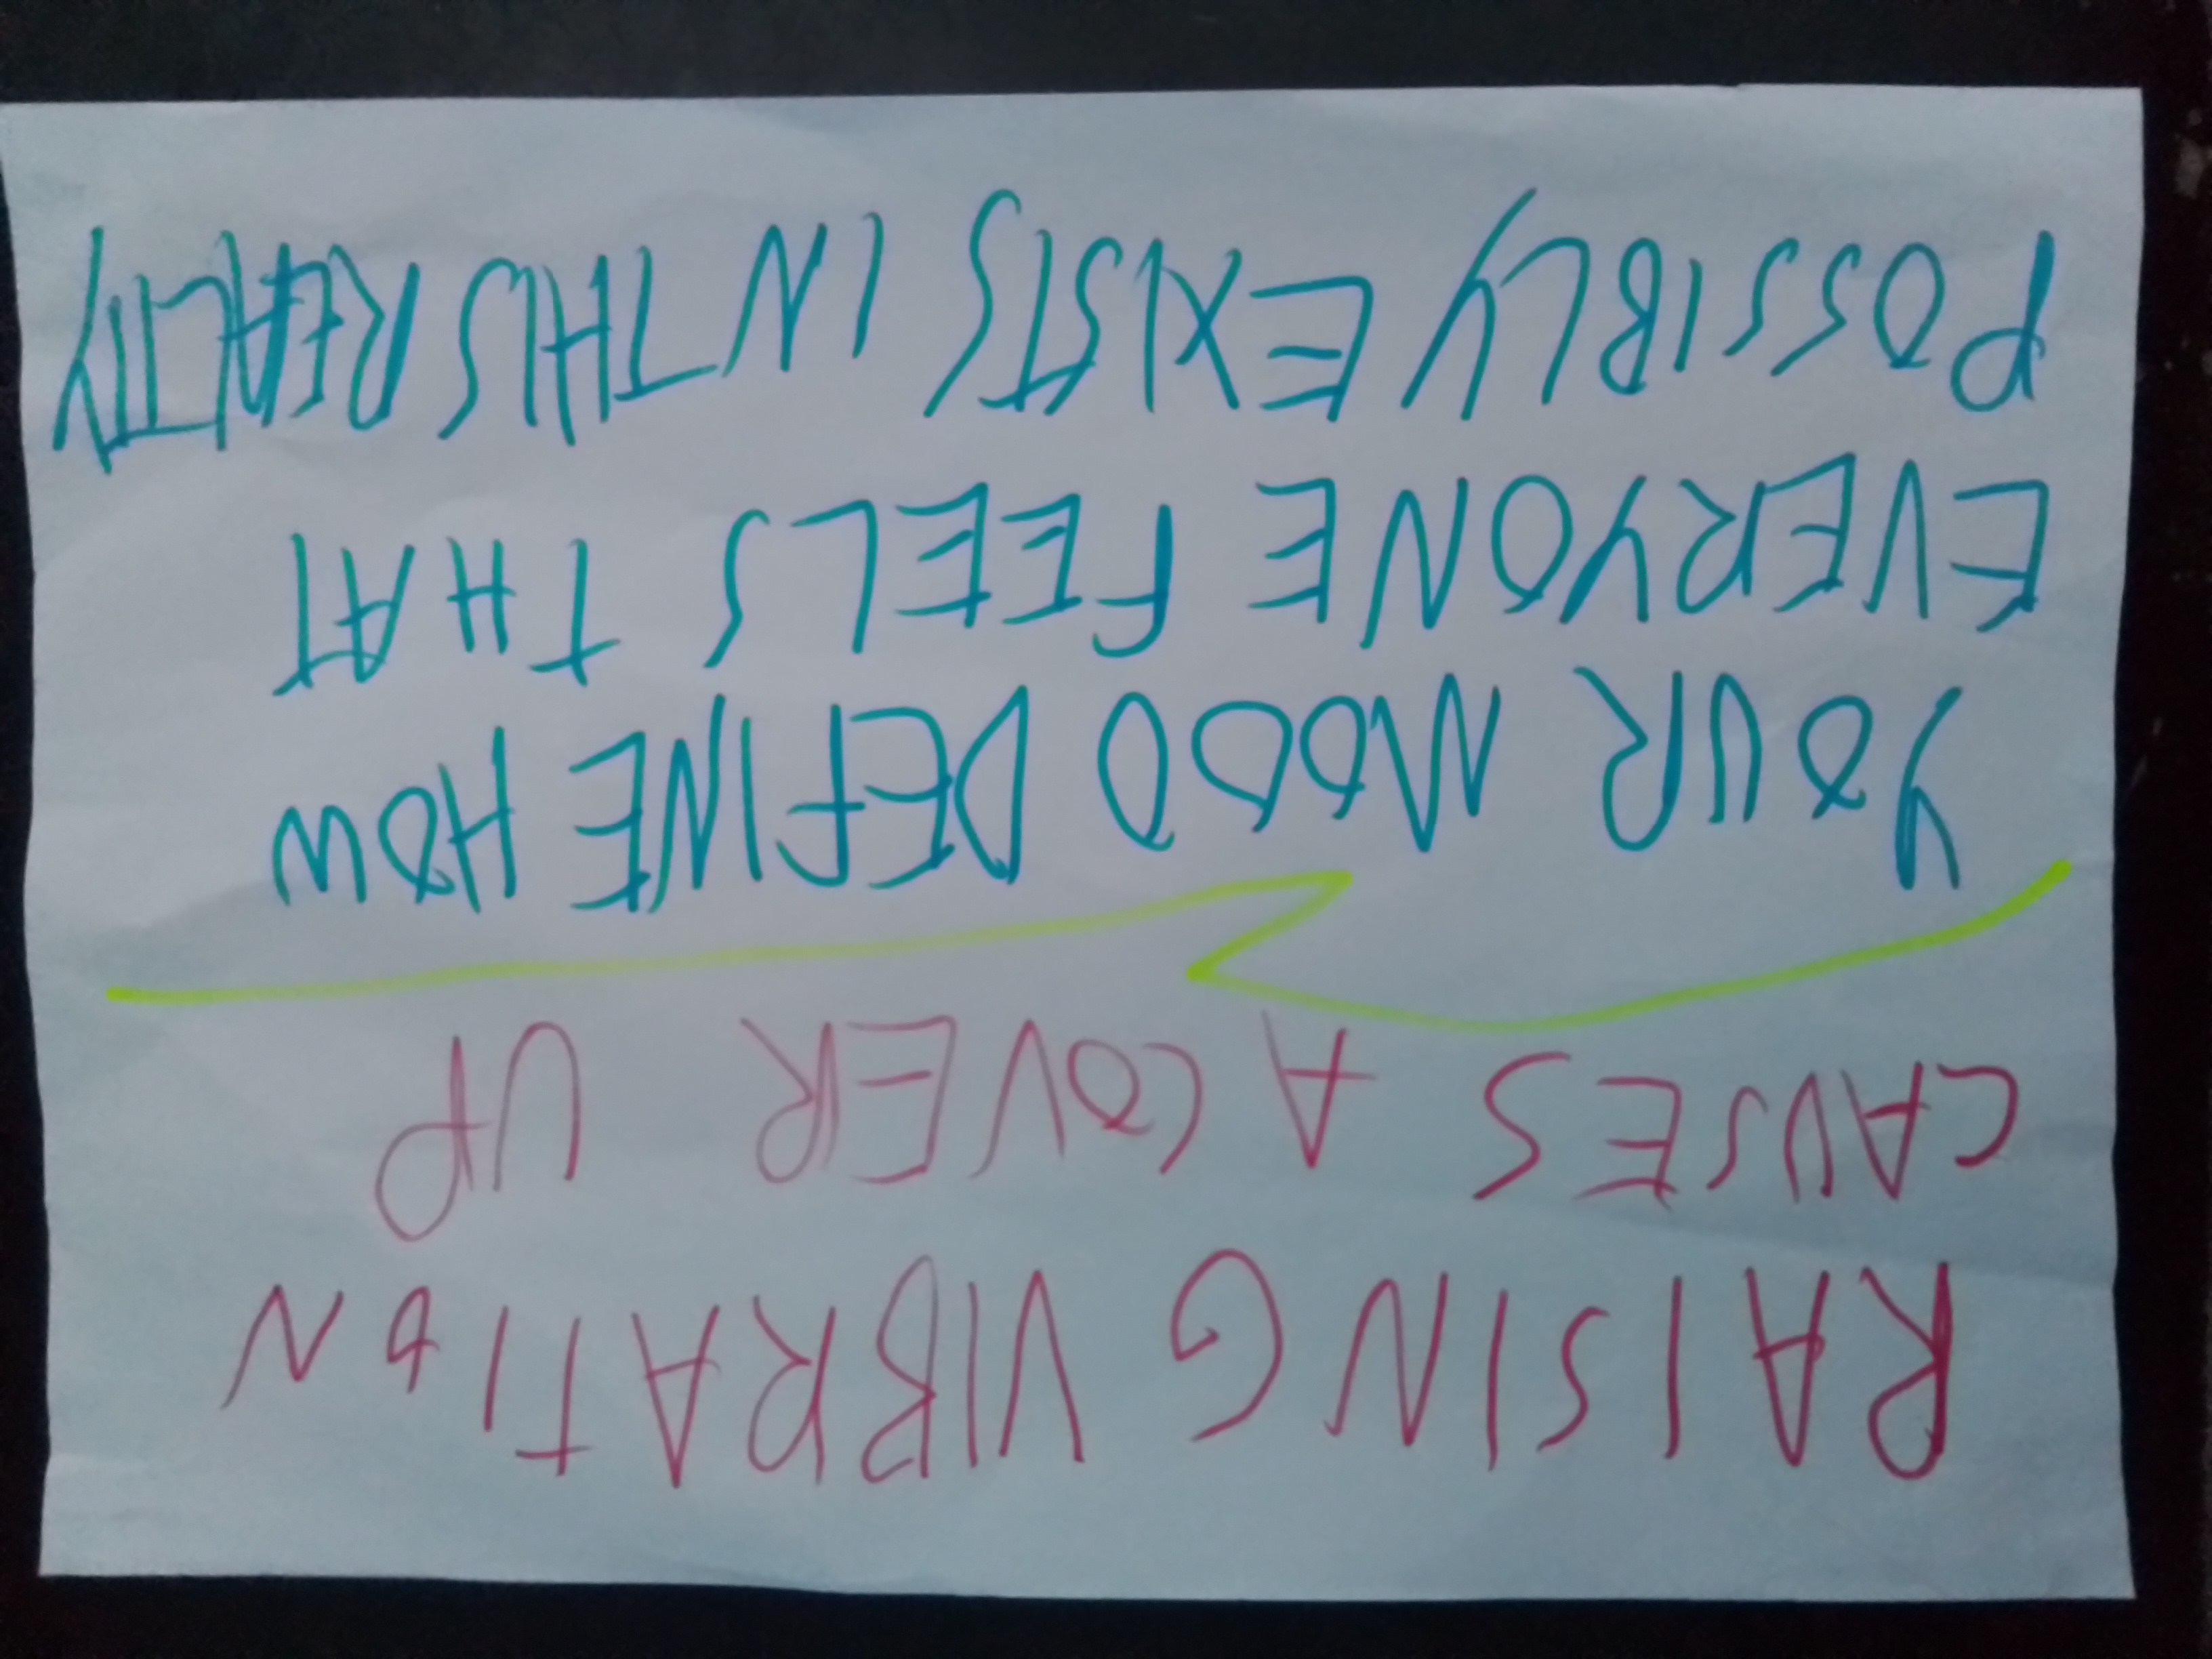 RAISING VIBRATION
CAUSES A COVER UP
YOUR MOOD DEFINE HOW
EVERYONE FEELS THAT
POSSIBLY EXISTS IN THIS REALITY